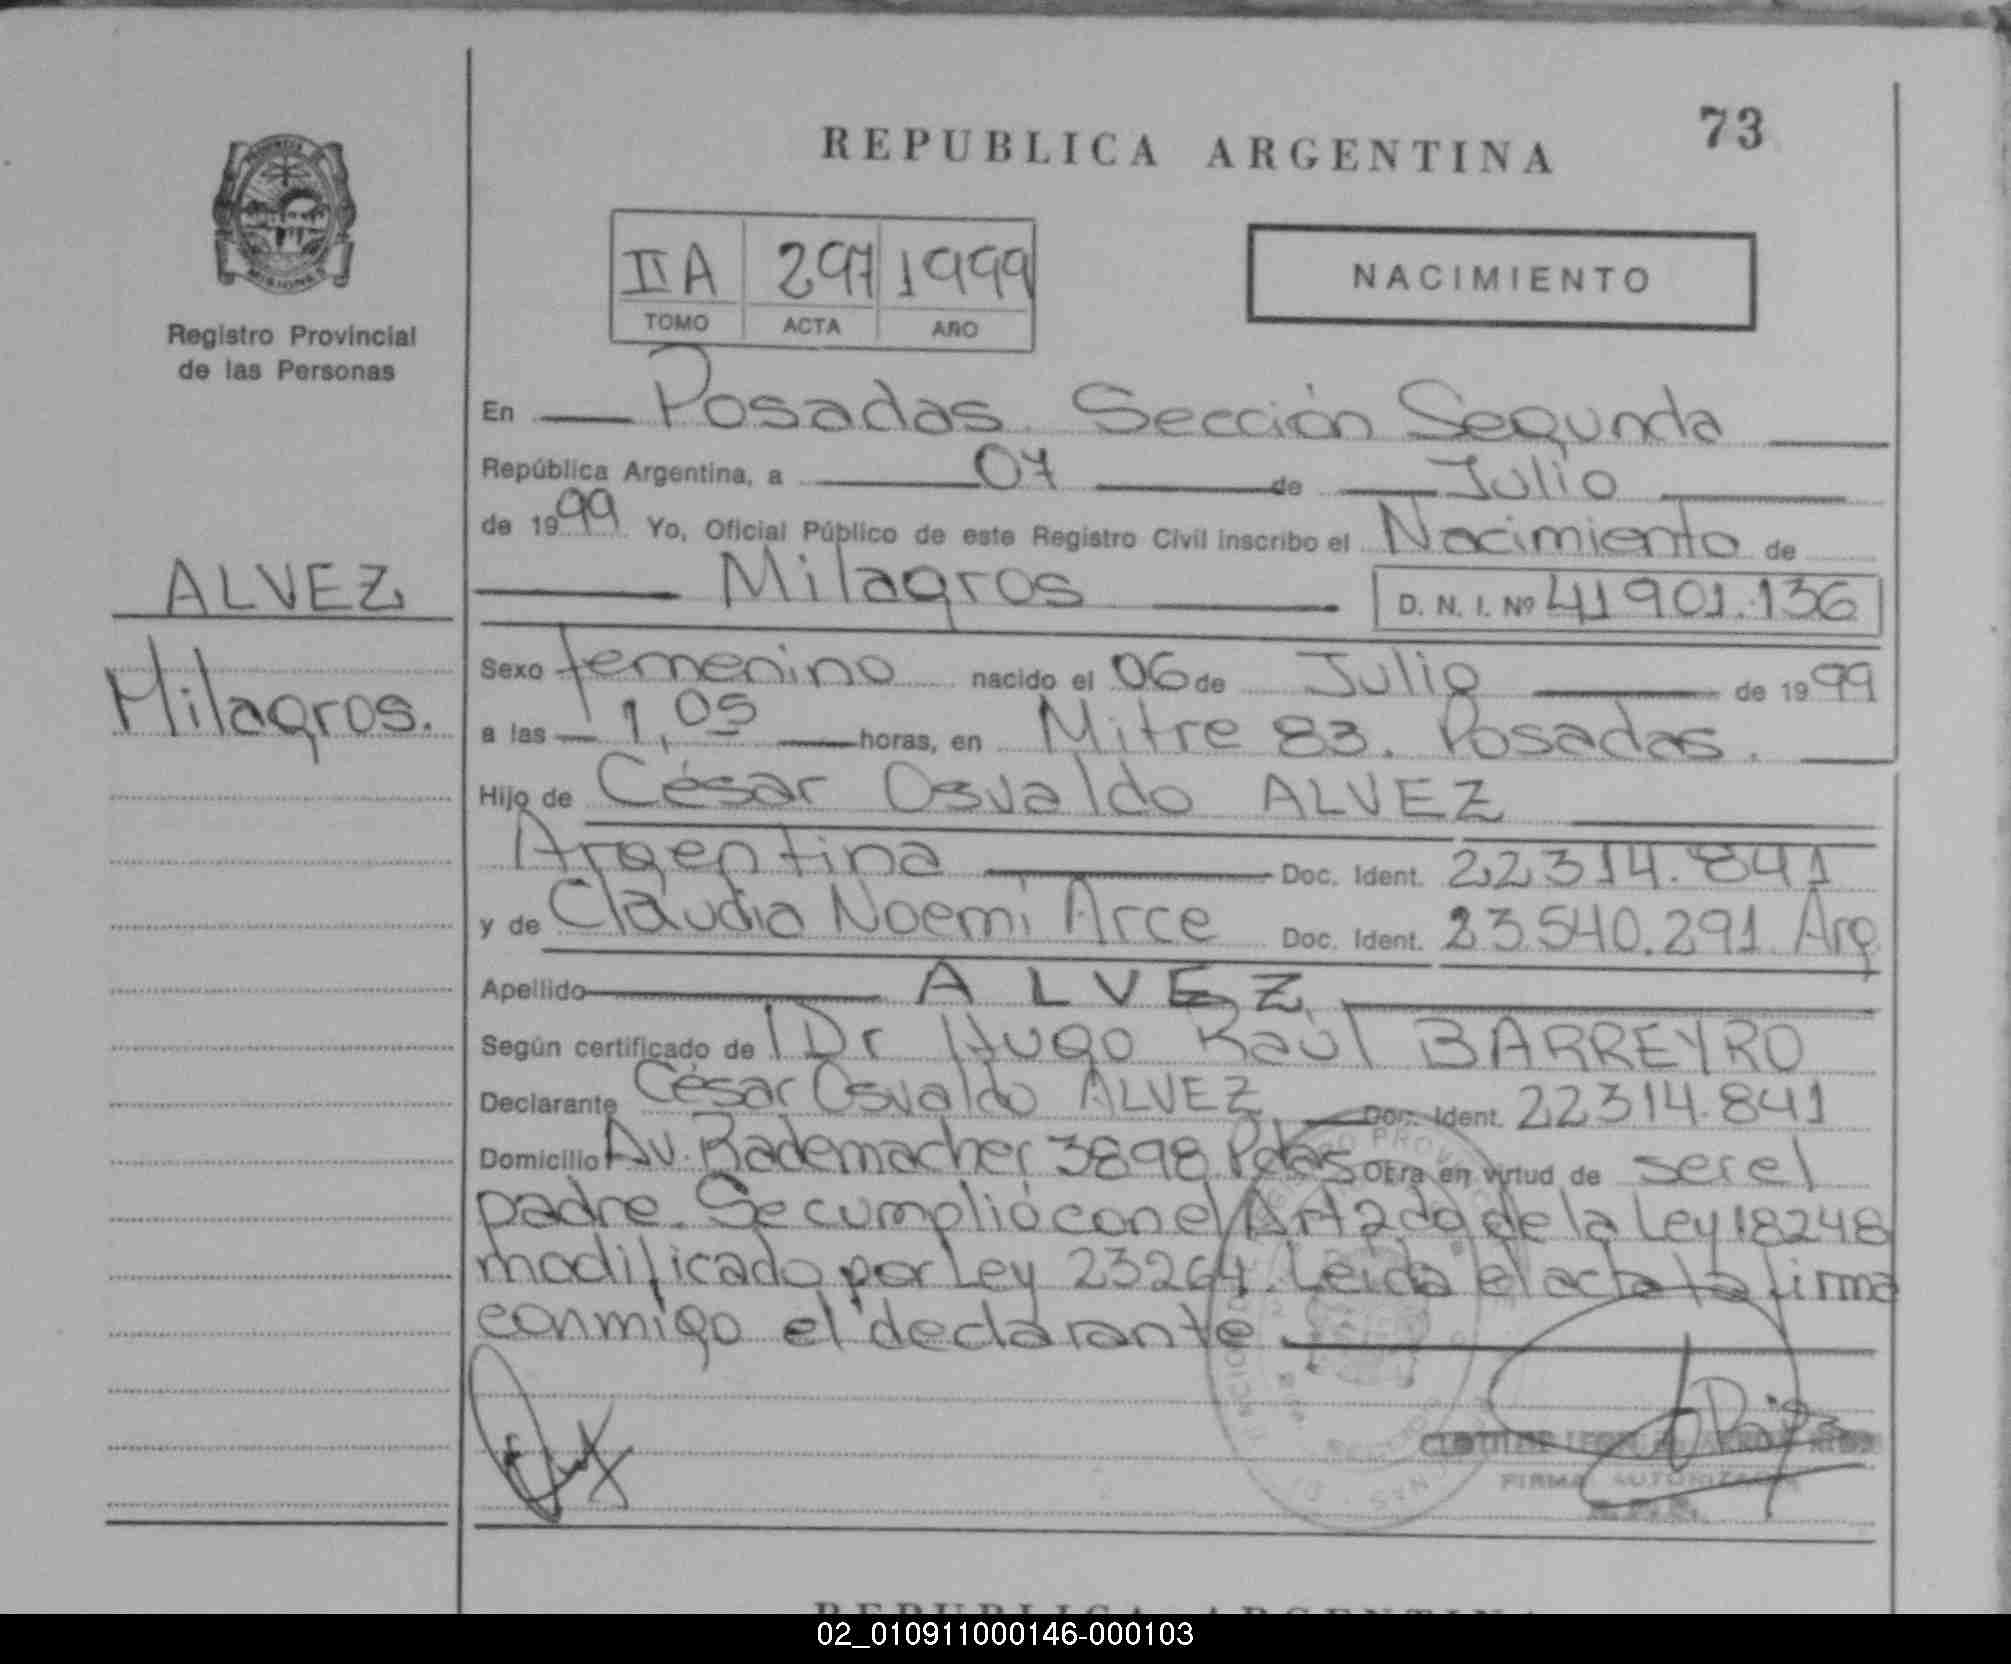 73
REPUBLICA ARGENTINA
IIA 297 1999
TOMO ACTA AÑO
NACIMIENTO
Registro Provincial
de las Personas
En Posadas Sección Segunda
República Argentina, a 07 de Julio
de 1999 Yo, Oficial Público de este Registro Civil inscribo el Nacimiento de
Milagros D. N. I. Nº 41901.136
ALVEZ
Milagros.
Sexo femenino nacido el 06 de Julio de 1999
a las 1,05 horas, en Mitre 83. Posadas.
Hijo de César Osvaldo ALVEZ
Argentina Doc. Ident. 22314.841
y de Claudia Noemi Arce Doc. Ident. 23.540.291 Arg
Apellido ALVEZ
Según certificado de Dr Hugo Raúl BARREYRO
Declarante César Osvaldo ALVEZ Doc. Ident. 22314.841
Domicilio Av. Rademacher 3898 Pdas Obra en virtud de ser el
padre. Se cumplió con el Art 2do de la Ley 18248
modificado por Ley 23264. Leida el acta la firma
conmigo el declarante
FIRMA AUTORIZADA
REPUBLICA ARGENTINA
02_010911000146-000103